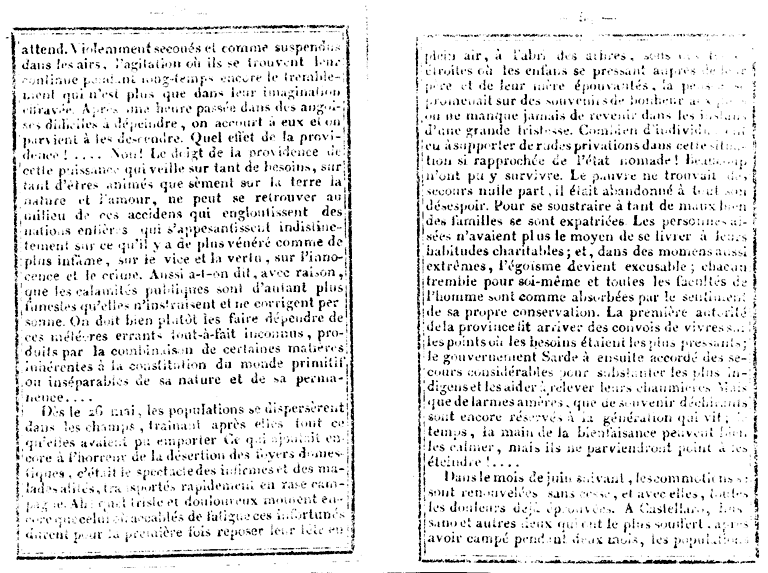 attend. Violemment secoués et comme suspendus
dans les airs, l'agitation où ils se trouvent leur
continue pendant long-temps encore le tremble-
ment qui n'est plus que dans leur imagination
Après une heure passée dans des angoi-
ses difficiles à dépeindre, on accourt à eux et on
parvient à les descendre. Quel effet de la provi-
dence !.... Non! Le doigt de la providence de
cette puissance qui veille sur tant de besoins, sur
tant d'êtres animés que sèment sur la terre la
nature et l'amour, ne peut se retrouver au
milieu de ces accidens qui engloutissent des
nations entières qui s'appesantissent indistinc-
tement sur ce qu'il y a de plus vénéré comme de
plus infâme, sur le vice et la vertu, sur l'inno-
cence et le crime. Aussi a-t-on dit, avec raison,
que les calamités publiques sont d'autant plus
funestes qu'elles n'instruisent et ne corrigent per
sonne. On doit bien plutôt les faire dépendre de
ces météores errants tout-à-fait inconnus, pro-
duits par la combinaison de certaines matières
inhérentes à la constitution du monde primitif
ou inséparables de sa nature et de sa perma-
nence....
Dès le 26 mai, les populations se dispersèrent
dans les champs, traînant après elles tout ce
qu'elles avaient pu emporter Ce qui ajoutait en-
core à l'horreur de la désertion des foyers domes-
tiques, c'était le spectacle des infirmes et des ma-
lades alités, transportés rapidement en rase cam-
pagne. Ah! quel triste et douloureux moment en-
core que celui où accablés de fatigue ces infortunés
durent pour la première fois reposer leur tête en
plein air, à l'abri des arbres, sous
étroites où les enfans se pressant auprès de leur
père et de leur mère épouvantés, la
promenait sur des souvenirs de bonheur
on ne manque jamais de revenir dans les
d'une grande tristesse. Combien d'individus
eu à supporter de rudes privations dans cette situa-
tion si rapprochée de l'état nomade! Beaucoup
n'ont pu y survivre. Le pauvre ne trouvait de
secours nulle part, il était abandonné à tout son
désespoir. Pour se soustraire à tant de maux bien
des familles se sont expatriées Les personnes ai-
sées n'avaient plus le moyen de se livrer à leurs
habitudes charitables; et, dans des momens aussi
extrêmes, l'égoïsme devient excusable; chacun
tremble pour soi-même et toutes les facultés de
l'homme sont comme absorbées par le sentiment
de sa propre conservation. La première autorité
de la province fit arriver des convois de vivres sur
les points où les besoins étaient les plus pressants;
le gouvernement Sarde à ensuite accordé des se-
cours considérables pour substanter les plus in-
digens et les aider à relever leurs chaumières Mais
que de larmes amères, que de souvenir déchirants
sont encore réservés à la génération qui vit; le
temps, la main de la bienfaisance peuvent bien
les calmer, mais ils ne parviendront point à les
éteindre!....
Dans le mois de juin suivant, les commotions se
sont renouvelées sans cesse, et avec elles, toutes
les douleurs déjà éprouvées. A Castellaro, Bus-
sano et autres lieux qui ont le plus souffert, après
avoir campé pendant deux mois, les populations